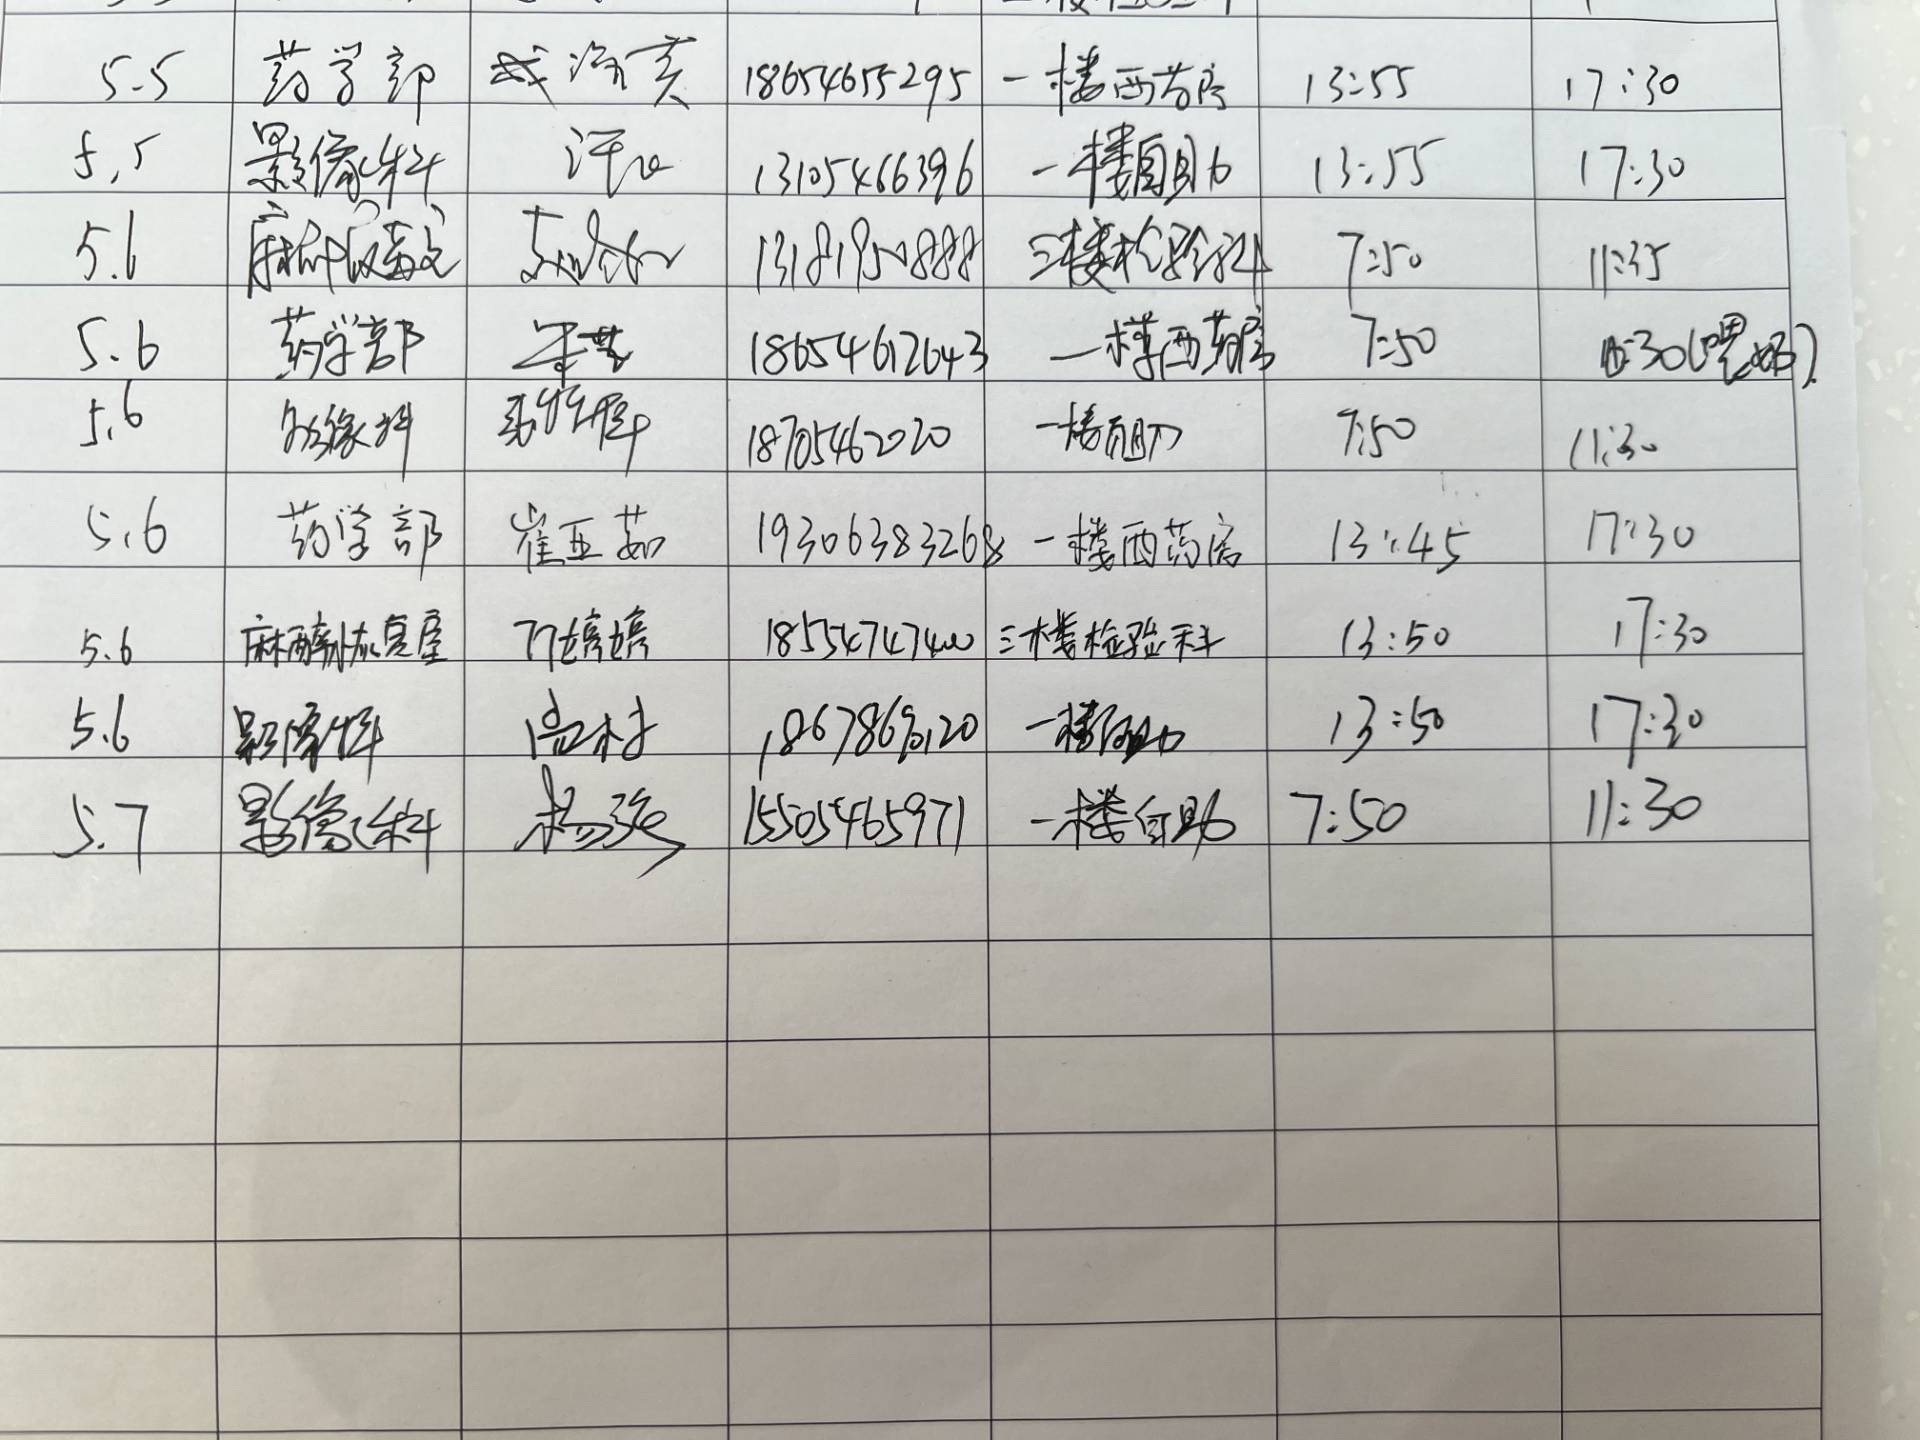 5.5 药学部 18654655295 一楼西药房 13:55 17:30
5.5 影像科 13105466396 一楼自助 13:55 17:30
5.6 13181950888 三楼检验科 7:50 11:35
5.6 药学部 18654612643 一楼西药房 7:50 :30(喂奶)
5.6 影像科 18705462020 一楼自助 7:50 11:30
5.6 药学部 崔亚茹 19306383268 一楼西药房 13:45 17:30
5.6 麻醉恢复室 婷婷 18554747400 三楼检验科 13:50 17:30
5.6 影像科 一楼自助 13:50 17:30
5.7 影像科 杨强 15505465971 一楼自助 7:50 11:30